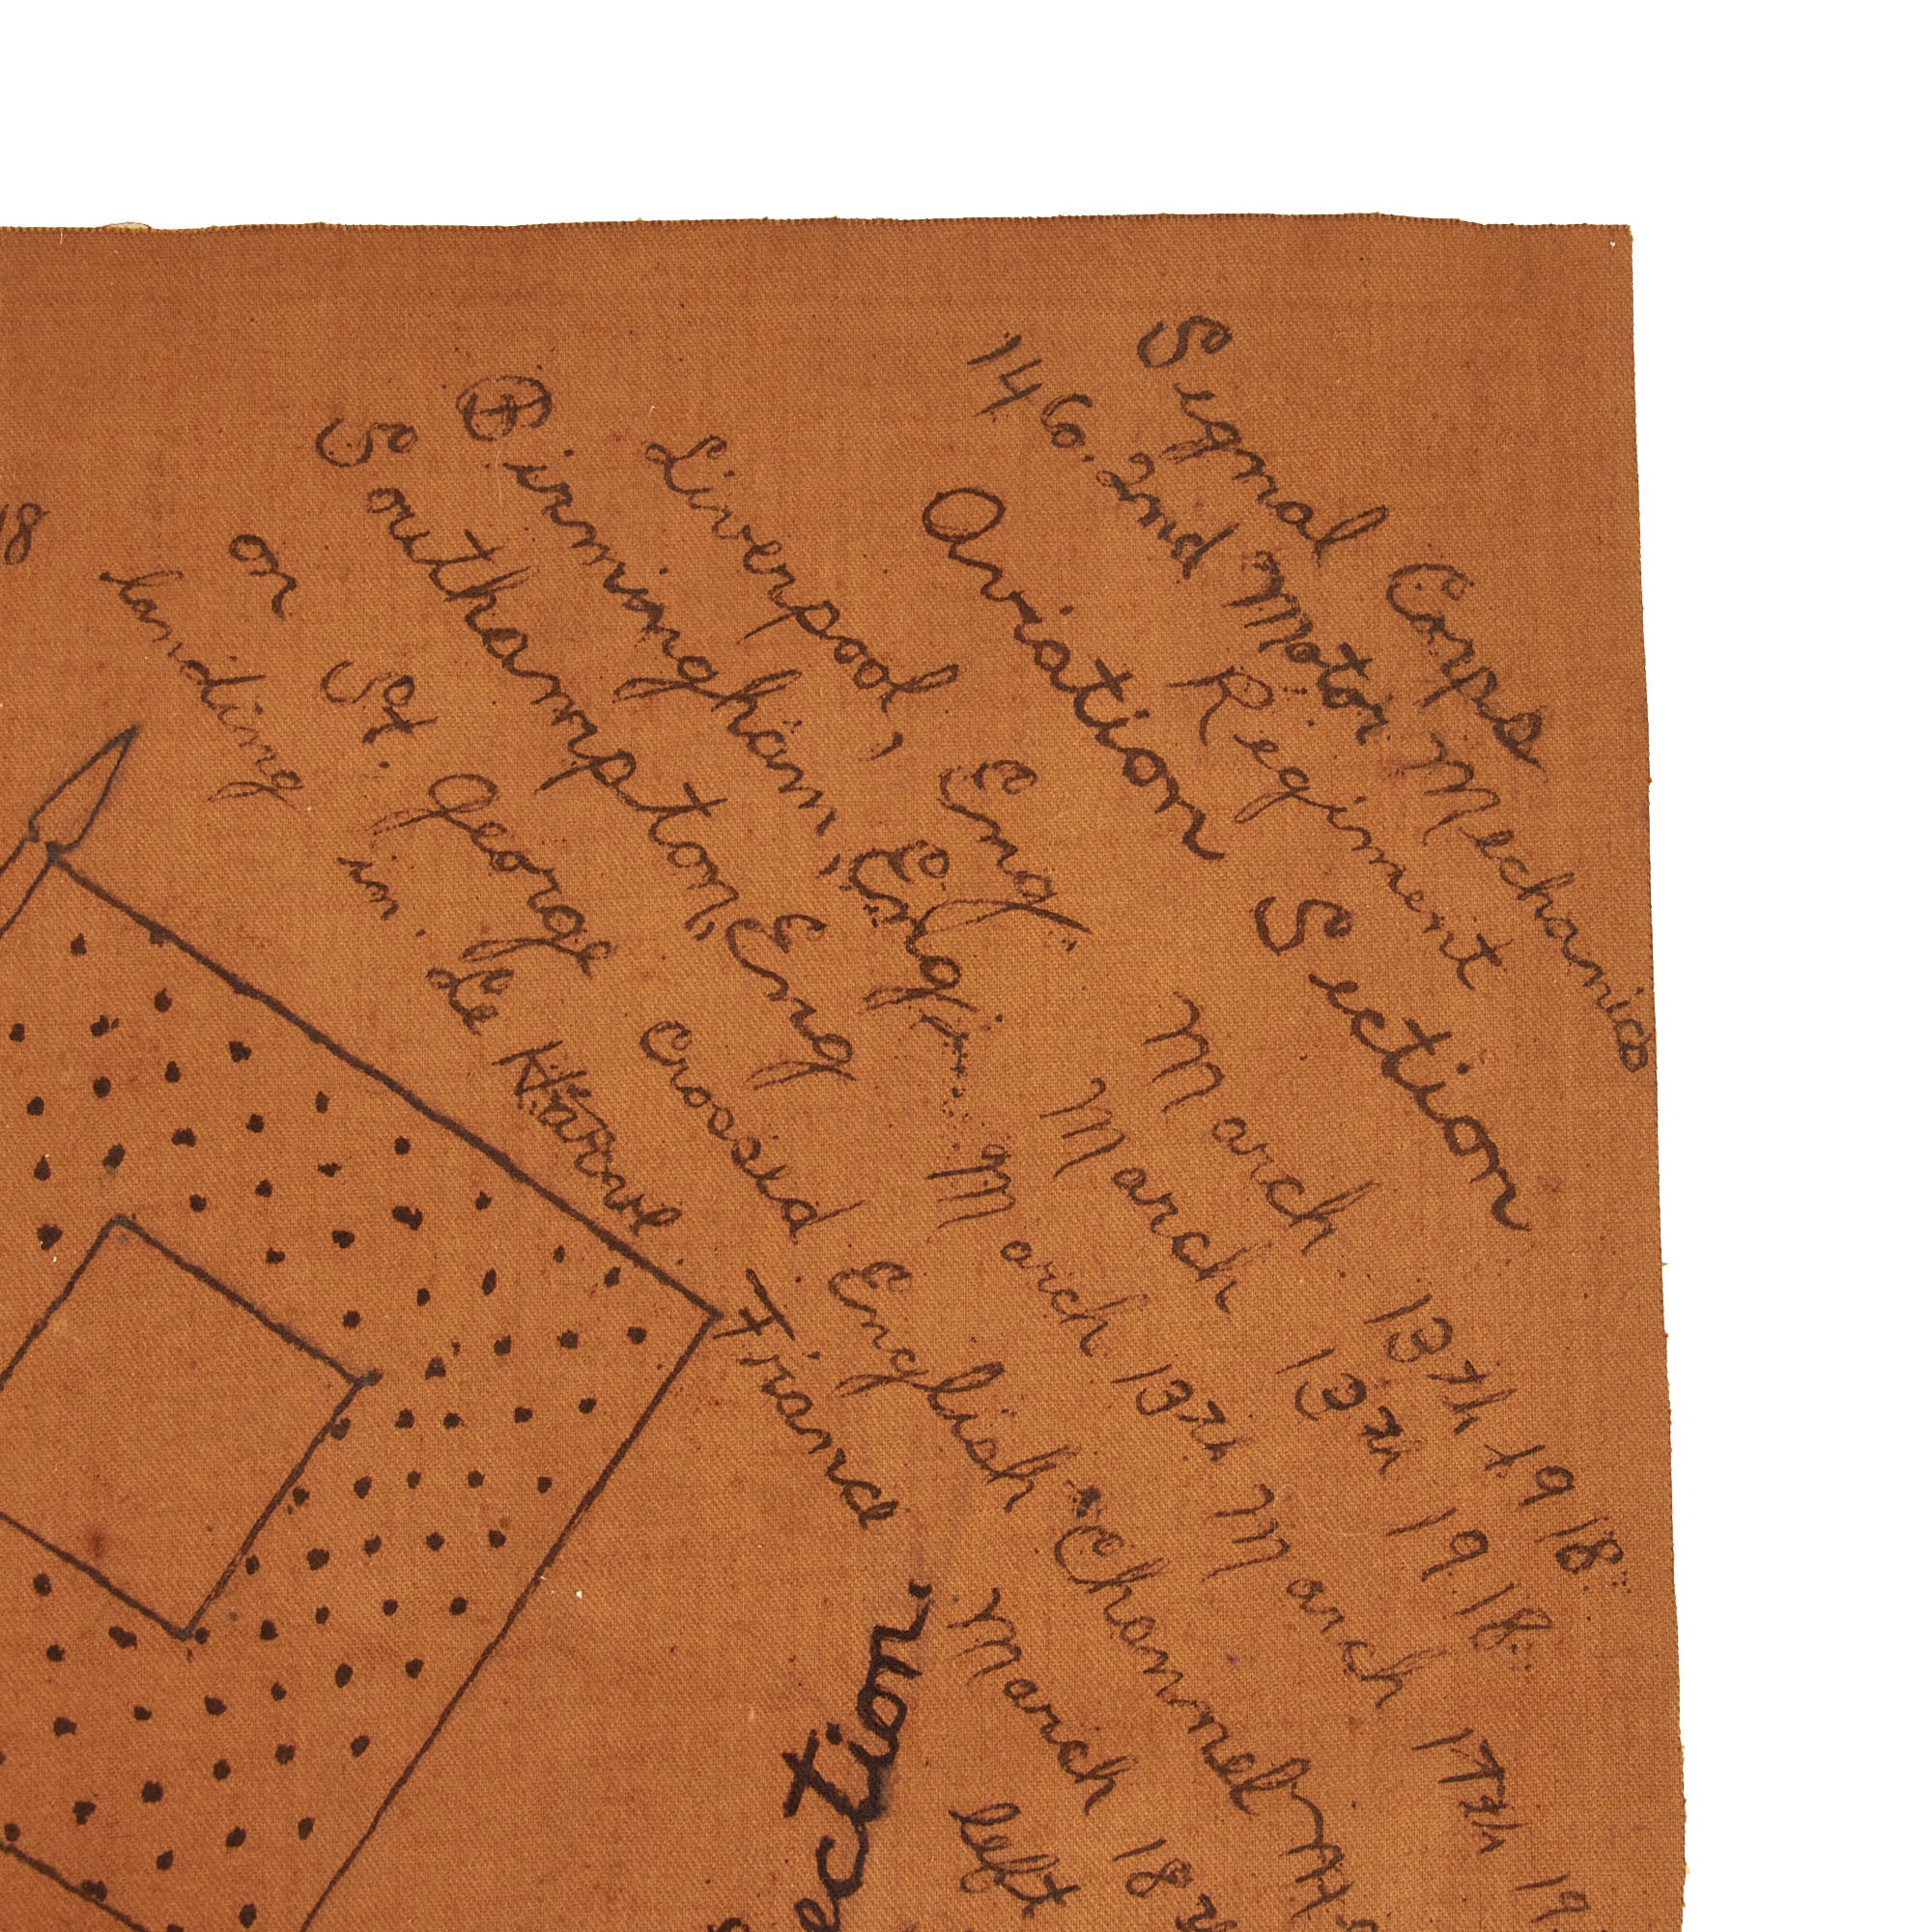 Signal Corps
146. 2nd Motor Mechanics
Regiment
Aviation Section
Liverpool, Eng. March 13th 1918.
Birmingham, Eng. March 13th 1918.
Southampton, Eng March 13th March 17th 19
on St. George crossed English Channel
landing in. Le Havre. France March 18
left
18
ection.